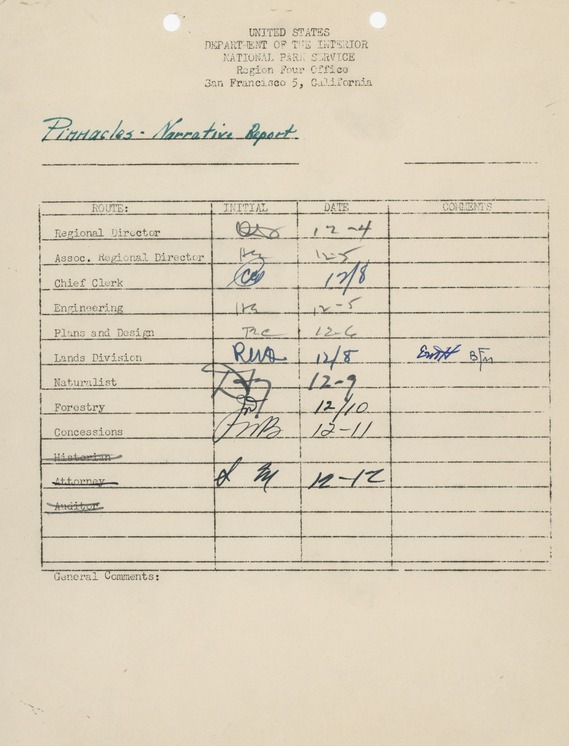 UNITED STATES
DEPARTMENT OF THE INTERIOR
NATIONAL PARK SERVICE
Region Four Office
San Francisco 5, California
Pinnacles - Narrative Report
ROUTE: INITIAL DATE COMMENTS
Regional Director 12-4
Assoc. Regional Director 12-5
Chief Clerk 12/8
Engineering 12-5
Plans and Design 12-6
Lands Division 12/8
Naturalist 12-9
Forestry 12/10
Concessions 12-11
Historian
Attorney 12-12
Auditor
General Comments: